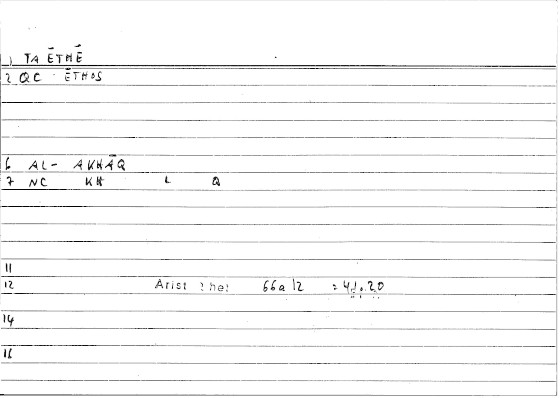 1 TA ĒTHḖ
2 QC ĒTHOS
6 AL- AKHĀQ
7 NC KH L Q
11
12 Arist Rhet 66a12 = 41,20
14
16